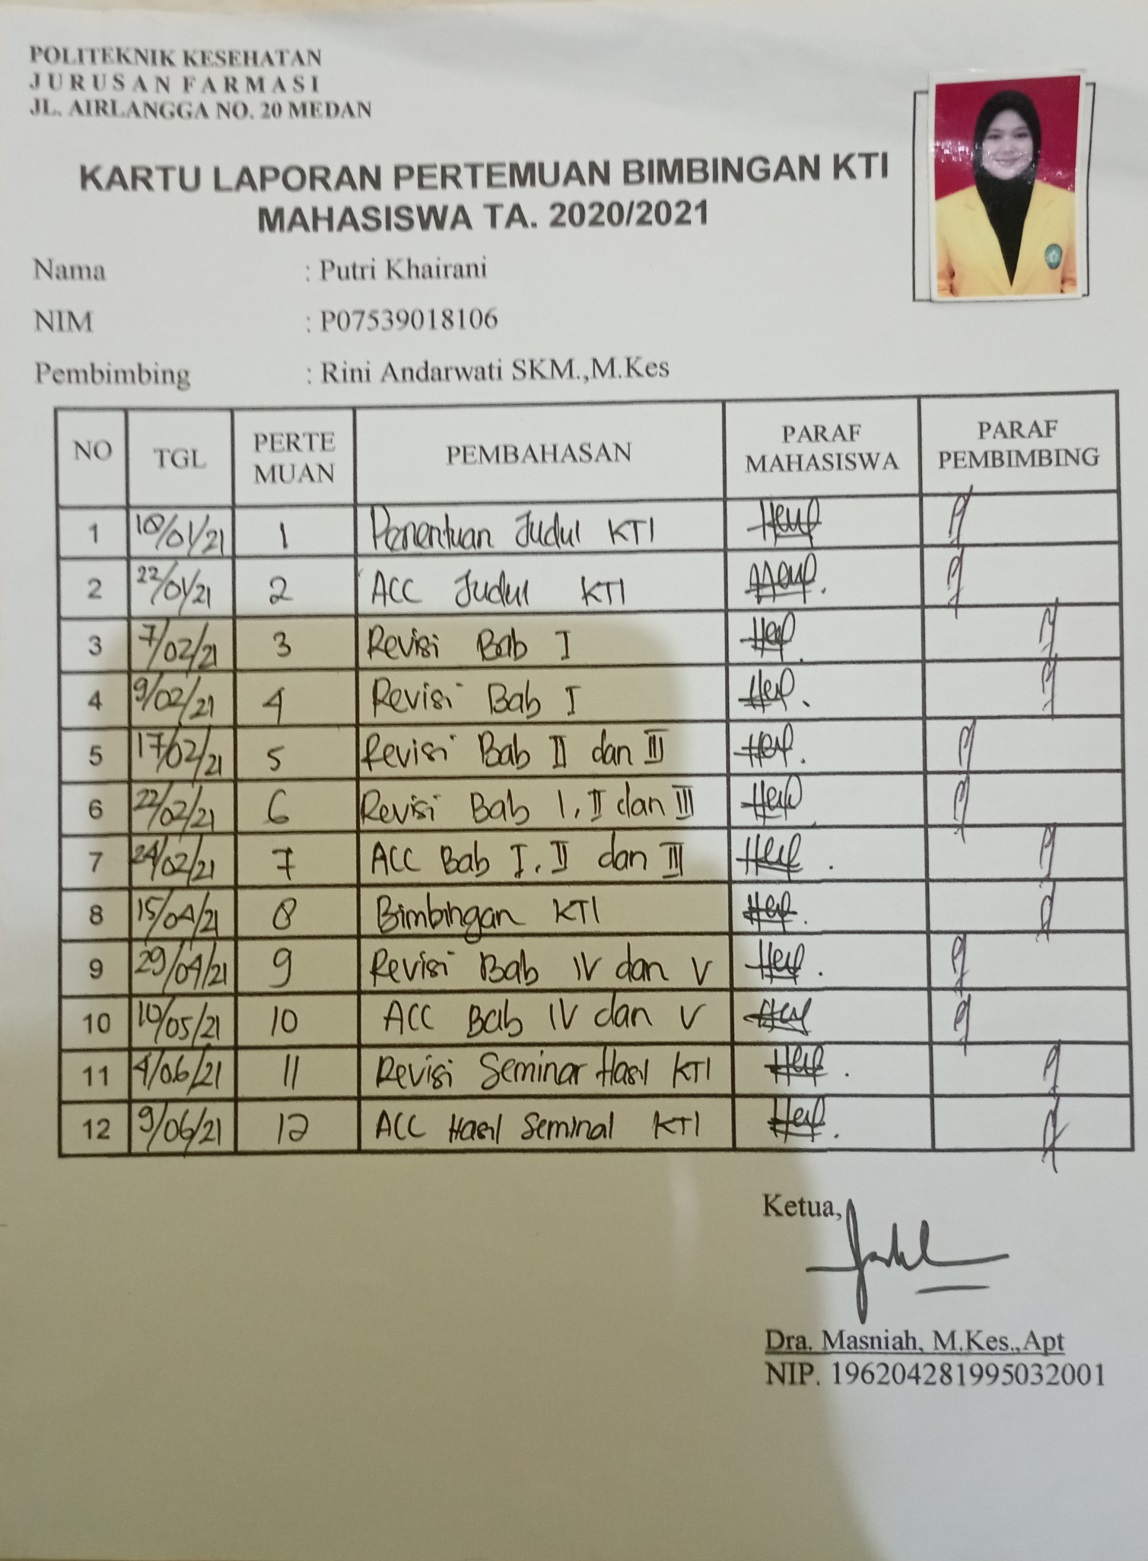 POLITEKNIK KESEHATAN
JURUSAN FARMASI
JL. AIRLANGGA NO. 20 MEDAN
KARTU LAPORAN PERTEMUAN BIMBINGAN KTI
MAHASISWA TA. 2020/2021
Nama : Putri Khairani
NIM : P07539018106
Pembimbing : Rini Andarwati SKM.,M.Kes
NO TGL PERTE MUAN PEMBAHASAN PARAF MAHASISWA PARAF PEMBIMBING
1 18/01/21 1 Penentuan Judul KTI
2 22/01/21 2 ACC Judul KTI
3 7/02/21 3 Revisi Bab I
4 9/02/21 4 Revisi Bab I
5 17/02/21 5 Revisi Bab II dan III
6 22/02/21 6 Revisi Bab I, II dan III
7 24/02/21 7 ACC Bab I, II dan III
8 15/04/21 8 Bimbingan KTI
9 29/04/21 9 Revisi Bab IV dan V
10 10/05/21 10 ACC Bab IV dan V
11 4/06/21 11 Revisi Seminar Hasil KTI
12 9/06/21 12 ACC Hasil Seminal KTI
Ketua,
Dra. Masniah, M.Kes.,Apt
NIP. 196204281995032001